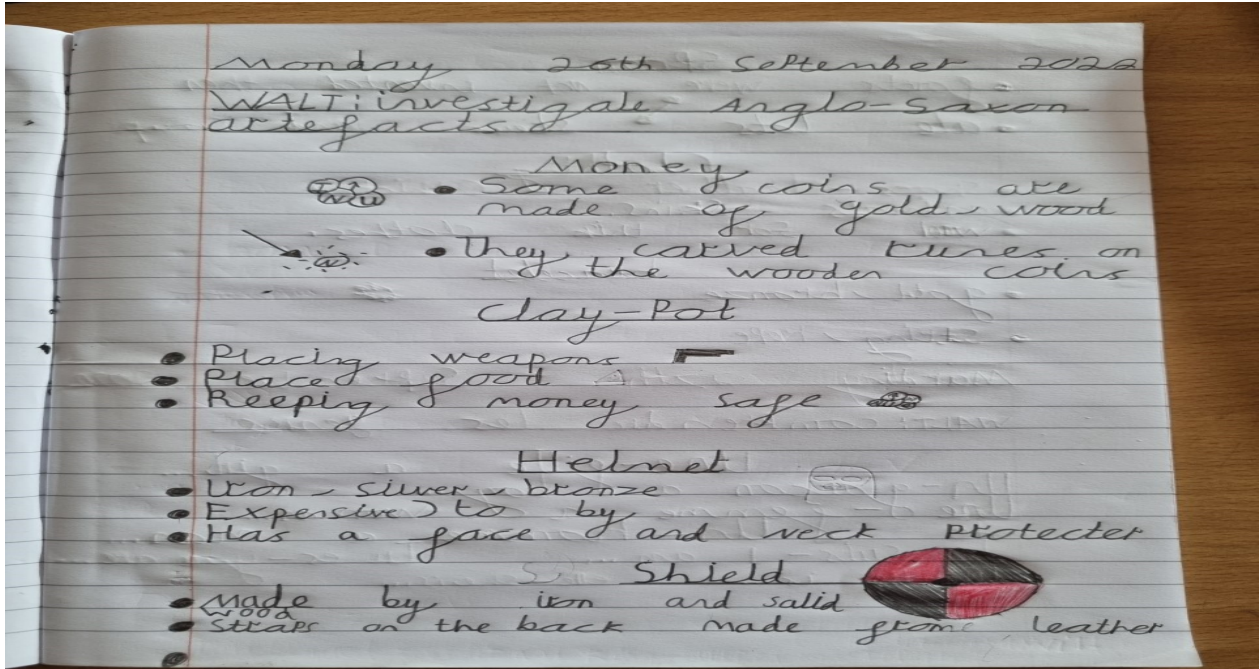 Monday 26th September 2022
WALT: investigate Anglo-Saxon
artefacts
Money
• Some coins are
made of gold, wood
• They carved runes on
the wooden coins
Clay-Pot
• Placing weapons
• Placed food
• Keeping money safe
Helmet
• Iron, silver, bronze
• Expensive to by
• Has a face and neck protecter
Shield
• Made by iron and salid
wood
• Straps on the back made from leather
•